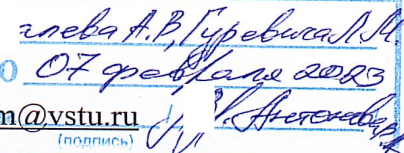 глева А.В, Гуревича Л.М.
О 07 февраля 2023
m@vstu.ru
(подпись) Антонова